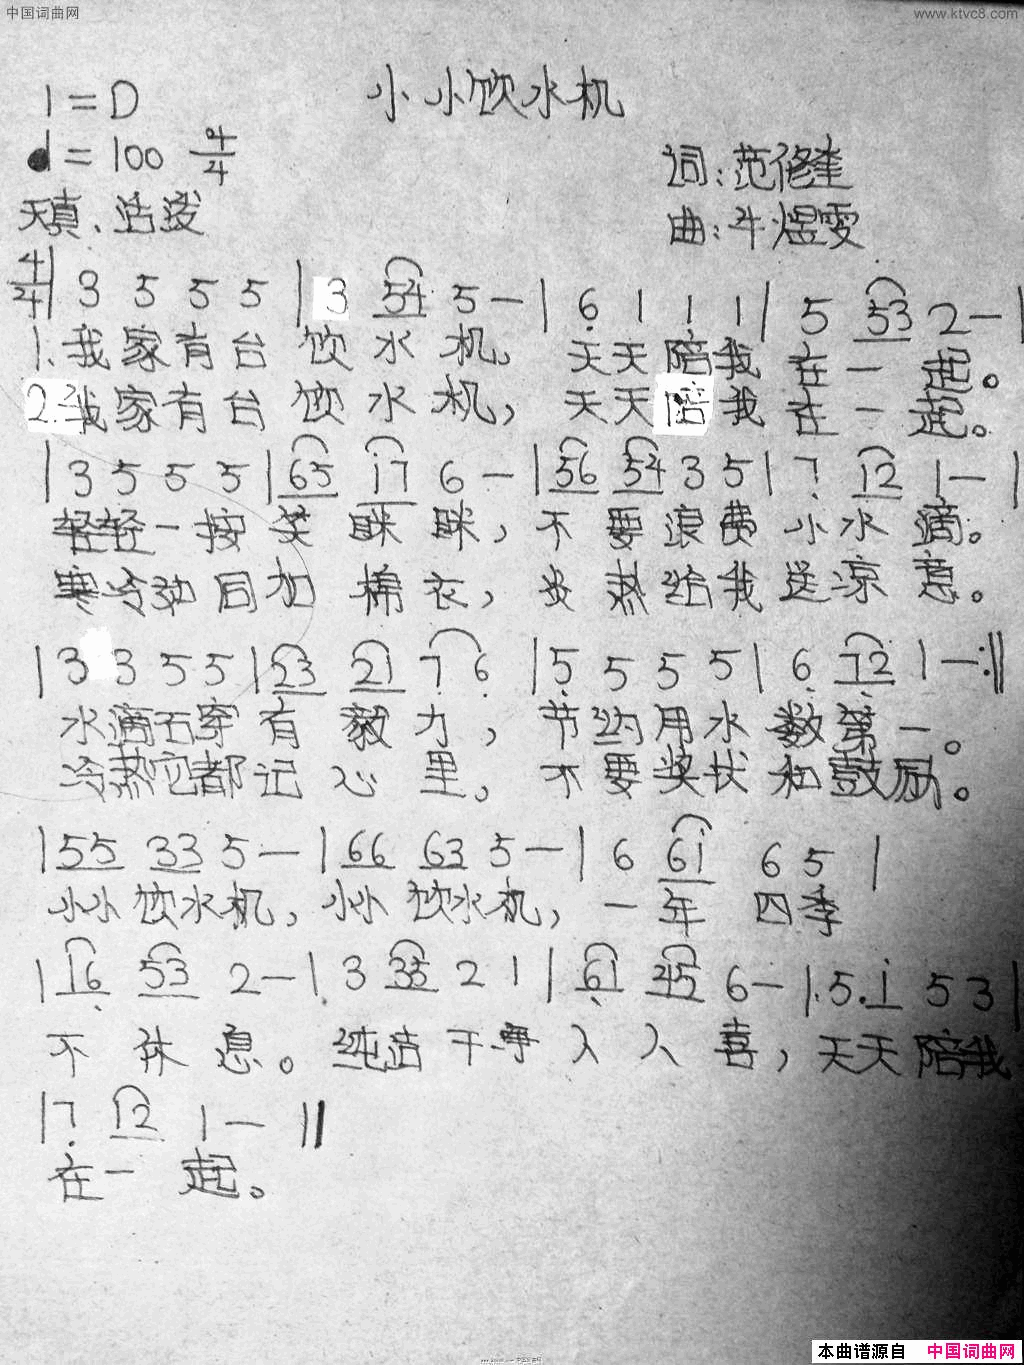 中国词曲网 www.ktvc8.com
小小饮水机
1=D
♩=100 4/4
词:范修奎
天真、活泼
曲:牛煜雯
4/4| 3 5 5 5 | 3 54 5 — | 6 1 1 1 | 5 53 2 — |
1.我家有台饮水机。天天陪我在一起。
2.我家有台饮水机,天天陪我在一起。
| 3 5 5 5 | 65 17 6 — | 56 54 3 5 | 7 12 1 — |
轻轻一按笑眯眯,不要浪费小水滴。
寒冷如同加棉衣,炎热给我送凉意。
| 3 3 5 5 | 23 21 7 6 | 5 5 5 5 | 6 72 1 — :||
水滴石穿有毅力,节约用水数第一。
冷热它都记心里。不要奖状和鼓励。
| 55 33 5 — | 66 63 5 — | 6 61 6 5 |
小小饮水机,小小饮水机,一年四季
| 16 53 2 — | 3 35 2 1 | 61 45 6 — | 5. 1 5 3 |
不休息。纯洁干净人人喜,天天陪我
| 7 12 1 — ||
在一起。
本曲谱源自 中国词曲网